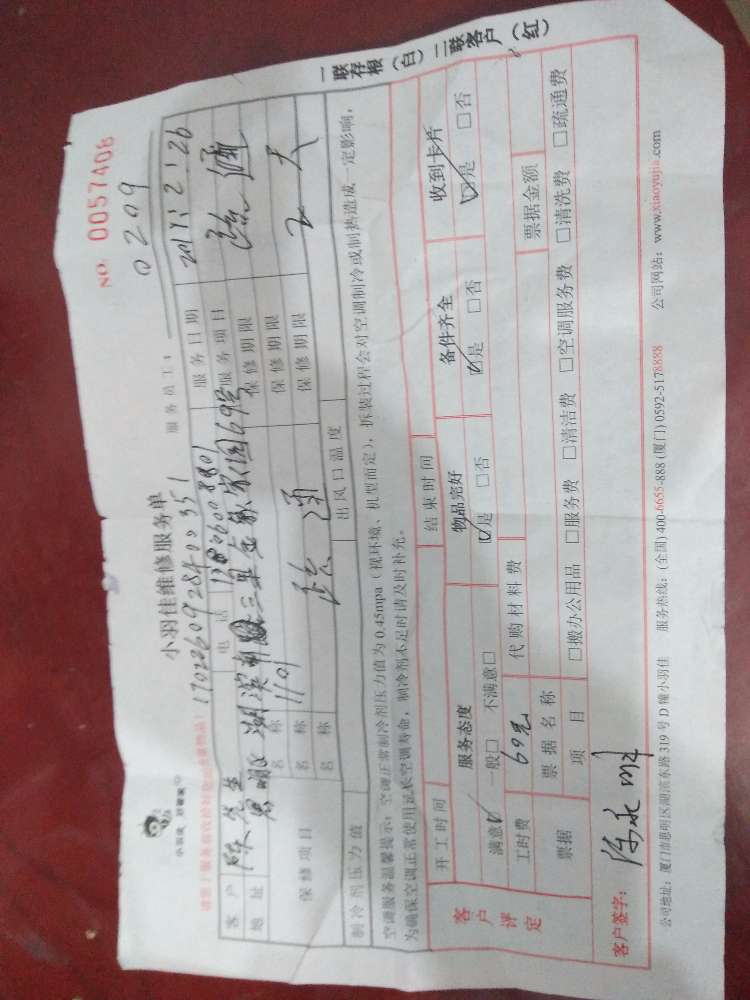 NO: 0057408
一联存根（白）二联客户（红）
小羽佳维修服务单
服务员工：0209
客户 陈先生 电话 服务日期
地址 思明区湖滨 服务项目 疏通
1101
保修项目 名称 疏通 保修期限 2天
名称 保修期限
名称 保修期限
制冷剂压力值 出风口温度
空调服务温馨提示：空调正常制冷剂压力值为0.45mpa（视环境、机型而定），拆装过程会对空调制冷或制热造成一定影响，
为确保空调正常使用延长空调寿命，制冷剂不足时请及时补充。
客户评定
开工时间 结束时间
服务态度 物品完好 备件齐全 收到卡片
满意☑ 一般□ 不满意□ ☑是 □否 ☑是 □否 ☑是 □否
工时费 69元 代购材料费 票据金额
票据 票据名称
项目 □搬办公用品 □服务费 □清洁费 □空调服务费 □清洗费 □疏通费
客户签字：
公司地址：厦门市思明区湖滨东路319号D幢小羽佳 服务热线：(全国)400-6655-888 (厦门)0592-5178888 公司网站：www.xiaoyujia.com